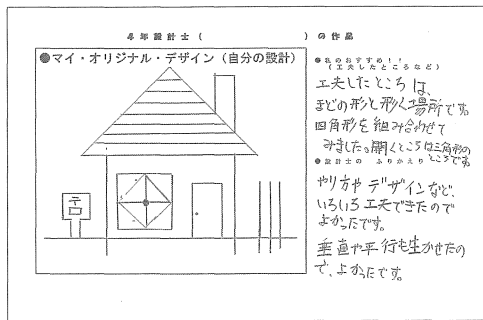 4年設計士（　　　　　　）の作品
●マイ・オリジナル・デザイン（自分の設計）
●私のおすすめ！！
（工夫したところなど）
工夫したところは、
まどの形と形く場所です。
四角形を組み合わせて
みました。開くところは三角形の
ところです。
●設計士の　ふりかえり
やり方やデザインなど、
いろいろ工夫できたので
よかったです。
垂直や平行も生かせたの
で、よかったです。